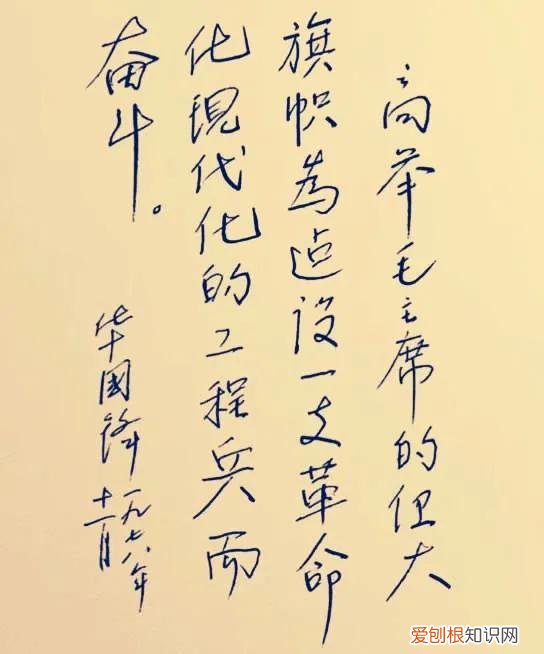 高举毛主席的伟大
旗帜為建设一支革命
化現代化的工程兵而
奋斗。
华國锋一九七八年
十一月
爱刨根知识网